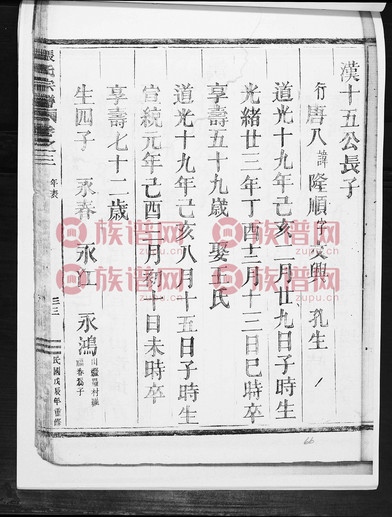 漢十五公長子
行唐八諱隆順字文興 孔生
道光十九年己亥二月廿九日子時生
光緒廿三年丁酉十二月十三日巳時卒
享壽五十九歲 娶王氏
道光十九年己亥八月十五日子時生
宣統元年己酉二月初十日未時卒
享壽七十一歲
生四子 永春 永江 永鴻
年表
三三
民國戊辰年重修
族谱网
66